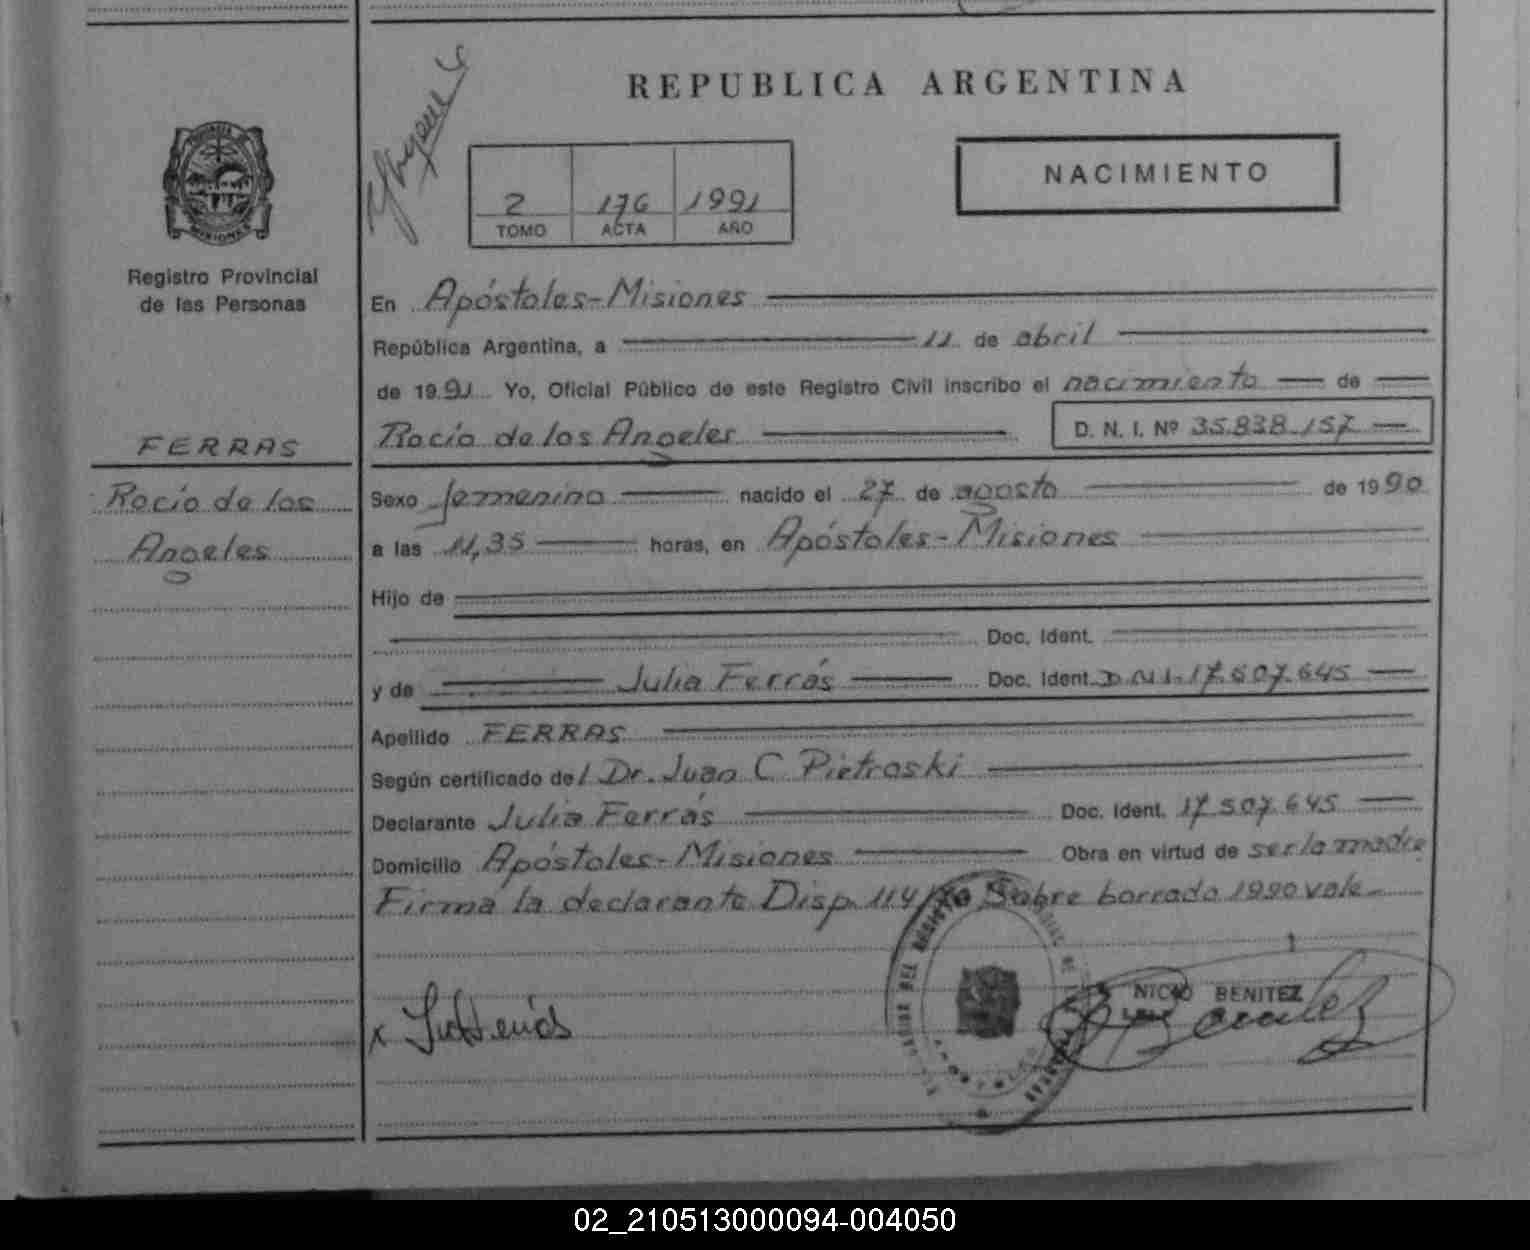 REPUBLICA ARGENTINA
NACIMIENTO
2 176 1991
TOMO ACTA AÑO
PROVINCIA DE
MISIONES
Registro Provincial
de las Personas
FERRAS
Rocío de los
Angeles
En Apóstoles-Misiones
República Argentina, a 11 de abril
de 1991 Yo, Oficial Público de este Registro Civil inscribo el nacimiento de
Rocío de los Angeles D. N. I. Nº 35.838.157
Sexo femenino nacido el 27 de agosto de 1990
a las 11,35 horas, en Apóstoles-Misiones
Hijo de
Doc. Ident.
y de Julia Ferrás Doc. Ident. D.N.I. 17.507.645
Apellido FERRAS
Según certificado del Dr. Juan C Pietroski
Declarante Julia Ferrás Doc. Ident. 17.507.645
Domicilio Apóstoles-Misiones Obra en virtud de ser la madre
Firma la declarante Disp. 114/ Sobre borrado 1990 vale
x
BENITEZ
02_210513000094-004050